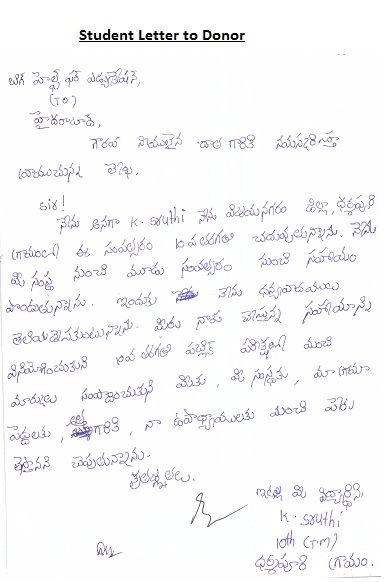 Student Letter to Donor
బిగ్ హెల్ప్ ఫర్ ఎడ్యుకేషన్,
(TO)
హైదరాబాద్,
గౌరవ నీయులైన దాత గారికి నమస్కరిస్తూ
వ్రాయునది లేఖ.
Sir!
నేను అనగా K. Sruthi నేను విజయనగరం జిల్లా, ధర్మపురి
గ్రామంలో ఈ సంవత్సరం 10వ తరగతి చదువుచున్నాను. నేను
మీ సంస్థ నుంచి మూడు సంవత్సరం నుంచి సహాయం
పొందుతున్నాను. ఇందుకు నేను ధన్యవాదములు
తెలియజేసుకుంటున్నాను. మీరు నాకు చేస్తున్న సహాయాన్ని
వినియోగించుకుని 10వ తరగతి పబ్లిక్ పరీక్షలలో మంచి
మార్కులు సంపాదించుకుని మీకు, మీ సంస్థకు, మా గ్రామ
పెద్దలకు, గారికి, నా ఉపాధ్యాయులకు మంచి పేరు
తెస్తానని చెపుతున్నాను.
కృతజ్ఞతలు.
ఇట్లు మీ విద్యార్థిని,
K. Sruthi
10th (T.M)
ధర్మపురి గ్రామం.